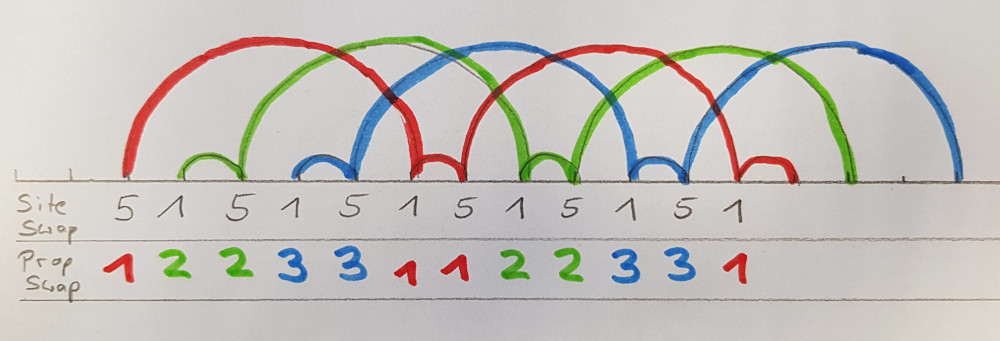 Site
Swap
5 1 5 1 5 1 5 1 5 1 5 1
Prop
Swap
1 2 2 3 3 1 1 2 2 3 3 1